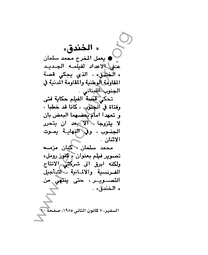 « الخندق »
● يعمل المخرج محمد سلمان
على الاعداد لفيلمه الجديد
« الخندق » ، الذي يحكي قصة
المقاومة الوطنية والمقاومة المدنية في
الجنوب اللبناني .
تحكي قصة الفيلم حكاية فتى
وفتاة في الجنوب ، كانا قد خطبا ،
و تعهدا امام بعضهما البعض بأن
لا يتزوجا ، الا بعد ان يتحرر
الجنوب . وفي النهاية يموت
الاثنان .
محمد سلمان ، كان مزمعا
تصوير فيلم بعنوان « كفر رومل»
ولكنه ابرق الى شركتي الانتاج
الفرنسية والالمانية ، لتأجيل
التصوير ، حتى ينتهي من
« الخندق » .
السفير، ٧ كانون الثاني ١٩٨٥، صفحة